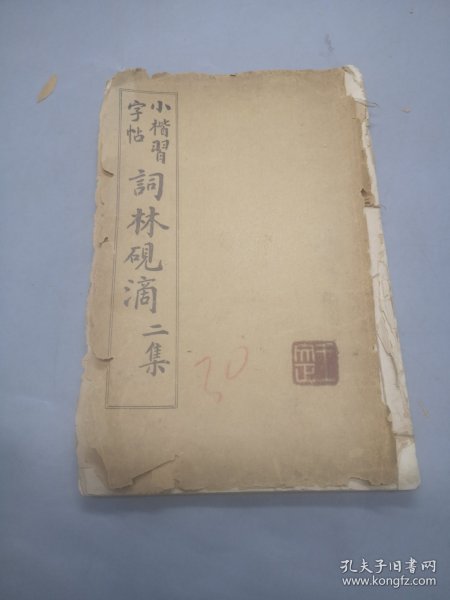 小楷習
字帖
詞林硯滴二集
30
孔夫子旧书网
www.kongfz.com